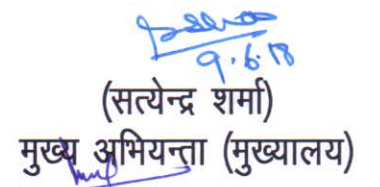 9.6.18
(सत्येन्द्र शर्मा)
मुख्य अभियन्ता (मुख्यालय)